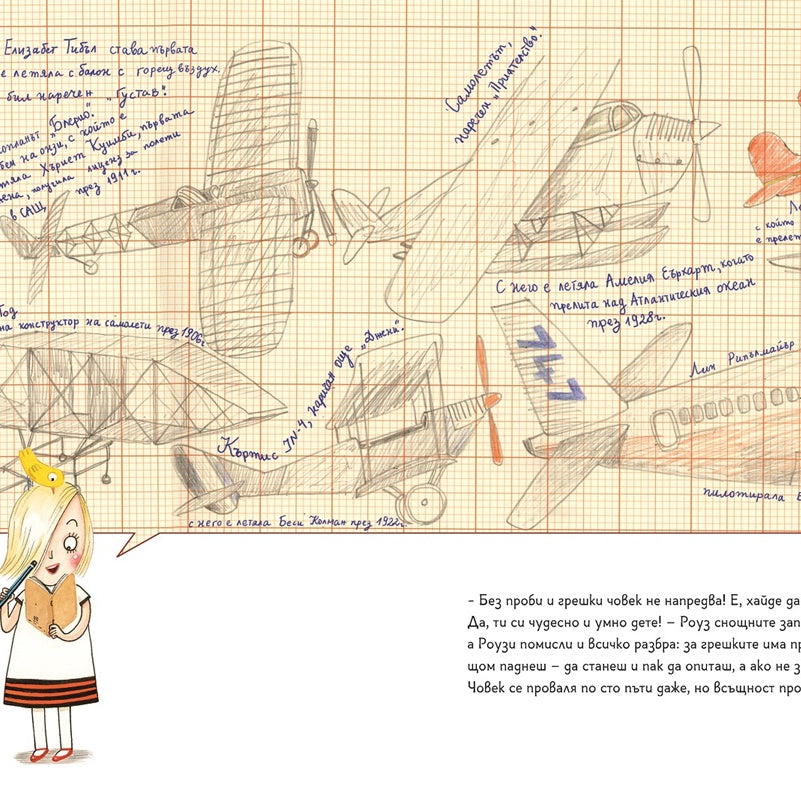 Елизабет Тибъл става първата
е летяла с балон с горещ въздух.
бил наречен „Густав“.
„Блерио“.
на онзи, с който е
Хариет Куимби, първата
получила лиценз за полети
в САЩ през 1911г.
Самолетът,
наречен „Приятелство“.
С него е летяла Амелия Еърхарт, когато
прелита над Атлантическия океан
през 1928г.
с който
е прелет
на конструктор на самолети през 1906г
Къртис JN-4, наричан още „Джени“.
с него е летяла Беси Колман през 1922г.
747
Лин Рипълмайър
пилотирала
- Без проби и грешки човек не напредва! Е, хайде да
Да, ти си чудесно и умно дете! – Роуз снощните зап
а Роузи помисли и всичко разбра: за грешките има пр
щом паднеш – да станеш и пак да опиташ, а ако не з
Човек се проваля по сто пъти даже, но всъщност про